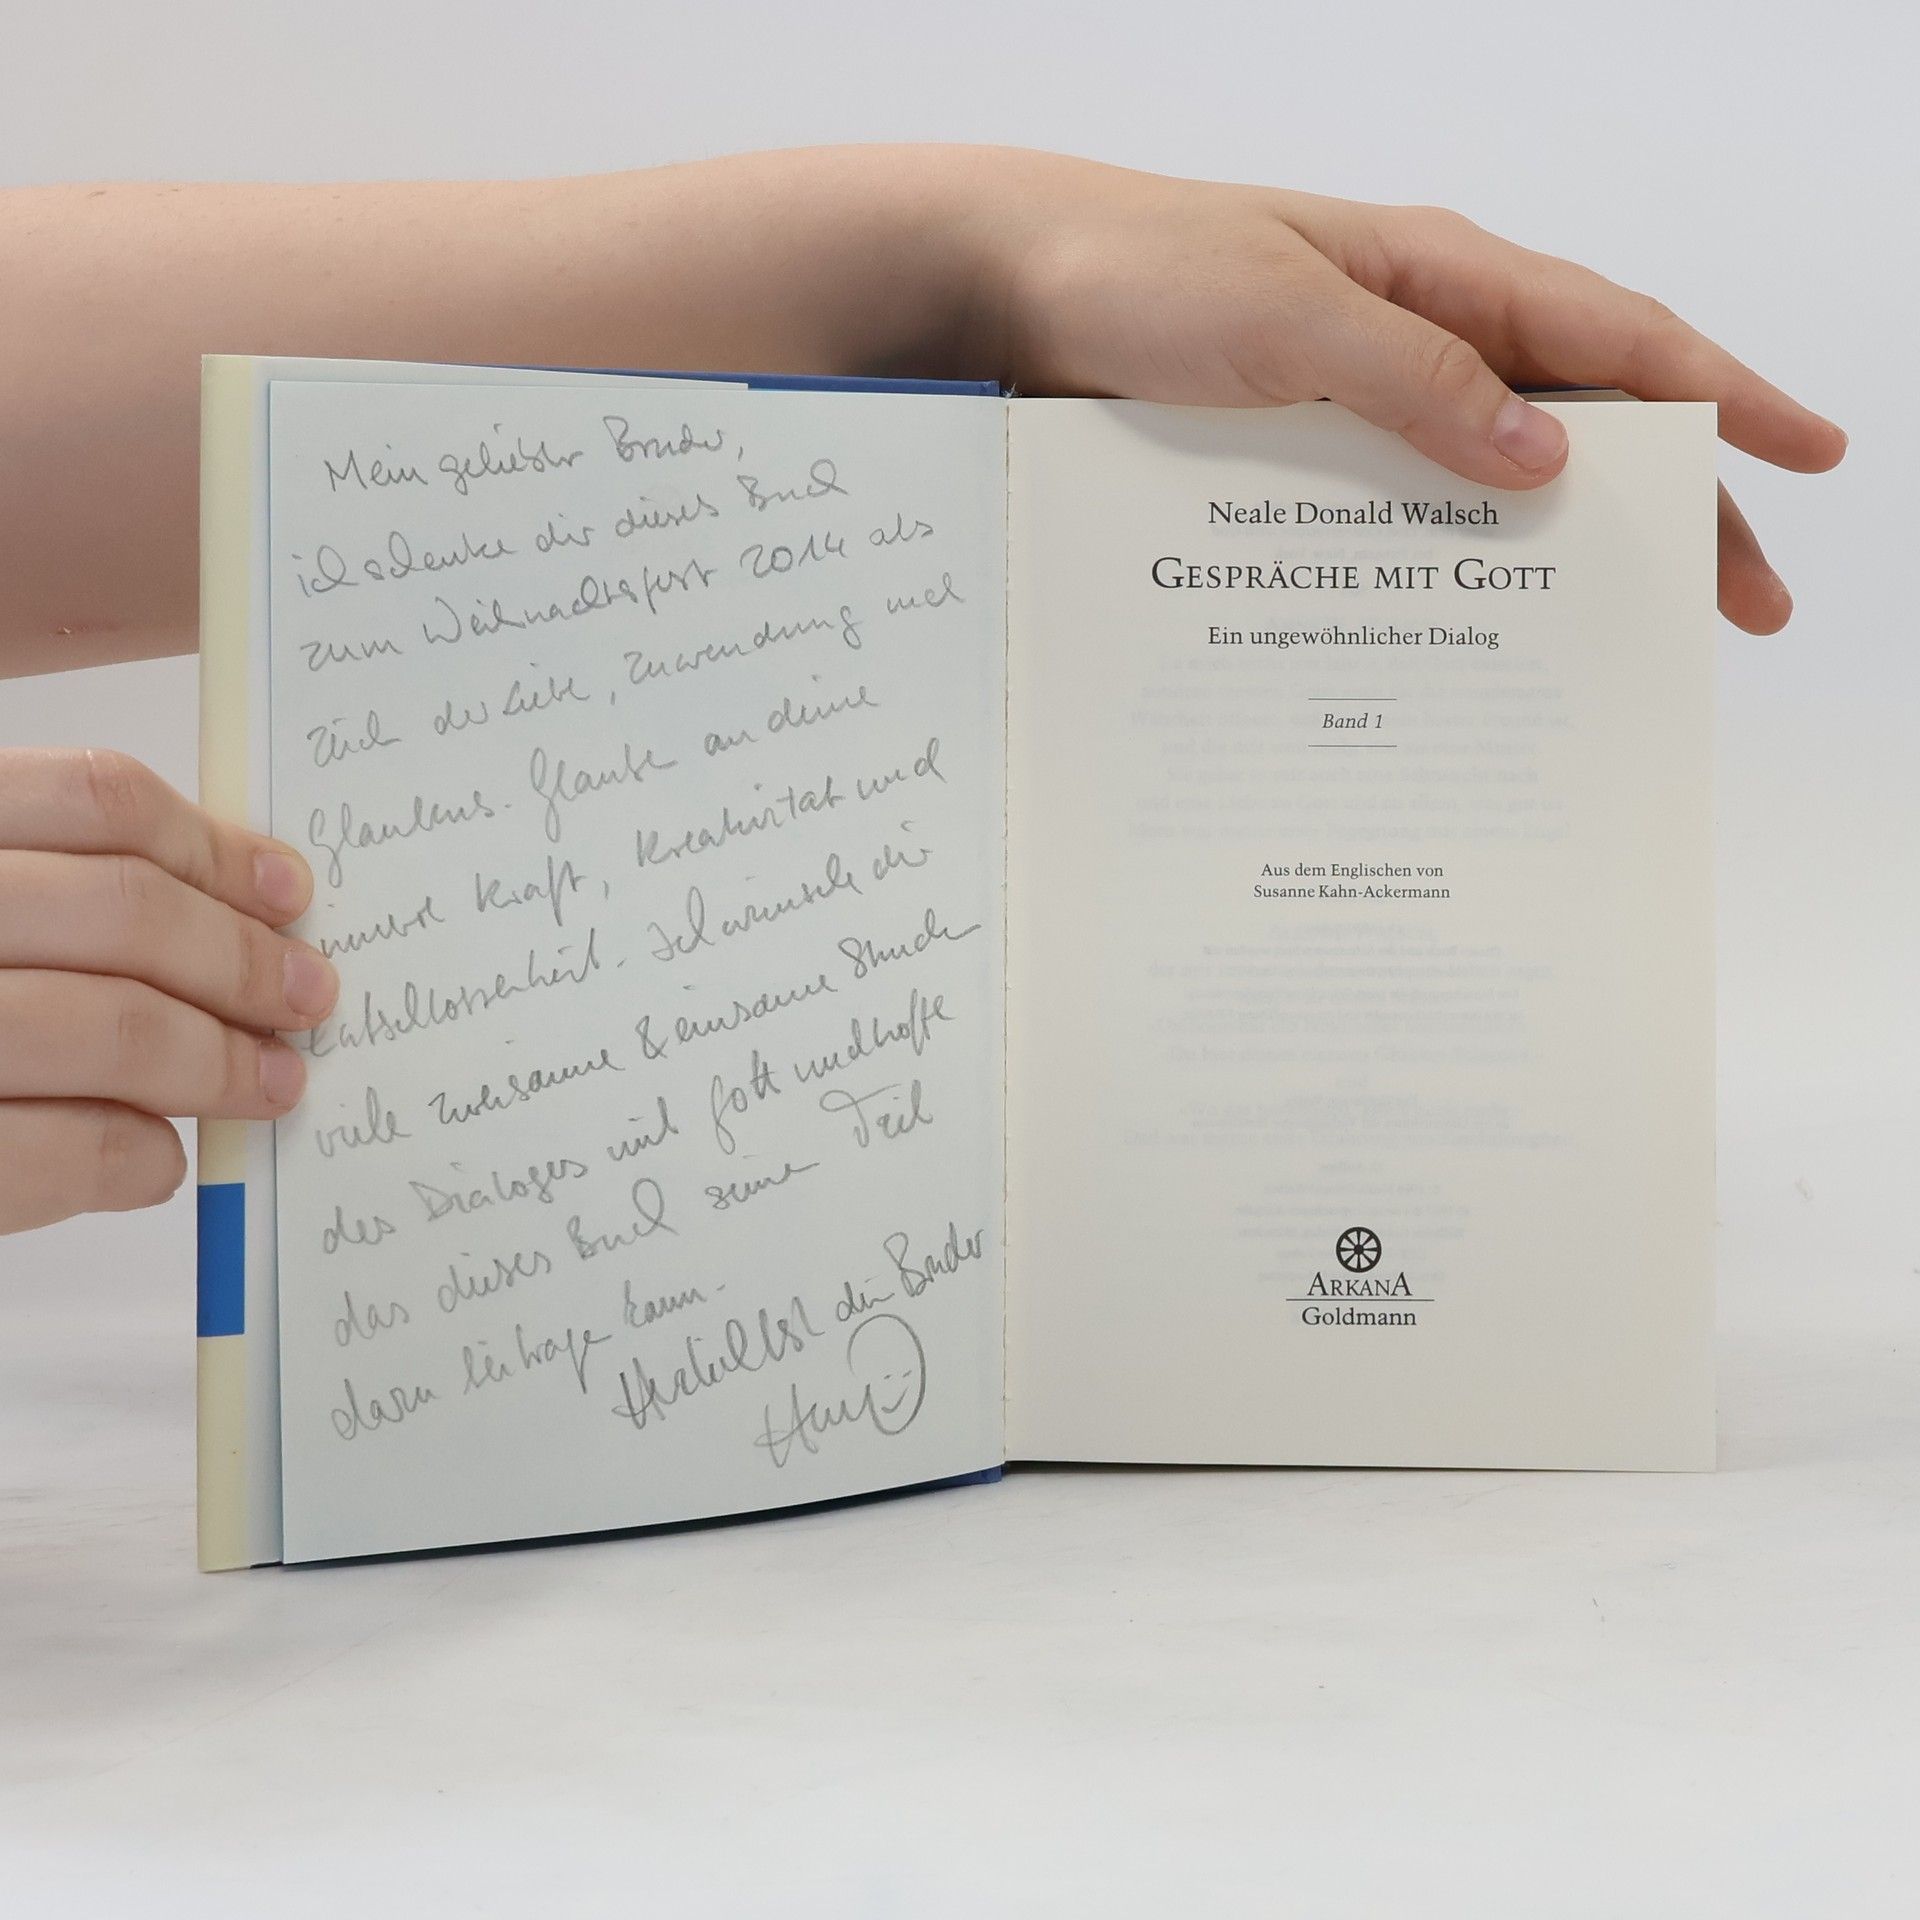 Mein geliebter Bruder,
ich schenke dir dieses Buch
zum Weihnachtsfest 2014 als
der Liebe, Zuwendung und
Glaubens. Glaube an deine
innere Kraft, Kreativität und
Entschlossenheit. Ich wünsche dir
viele zweisame & einsame Stunden
des Dialoges mit Gott und hoffe
das dieses Buch seinen Teil
dazu beitragen kann.
Herzlichst dein Bruder
Neale Donald Walsch
GESPRÄCHE MIT GOTT
Ein ungewöhnlicher Dialog
Band 1
Aus dem Englischen von
Susanne Kahn-Ackermann
ARKANA
Goldmann